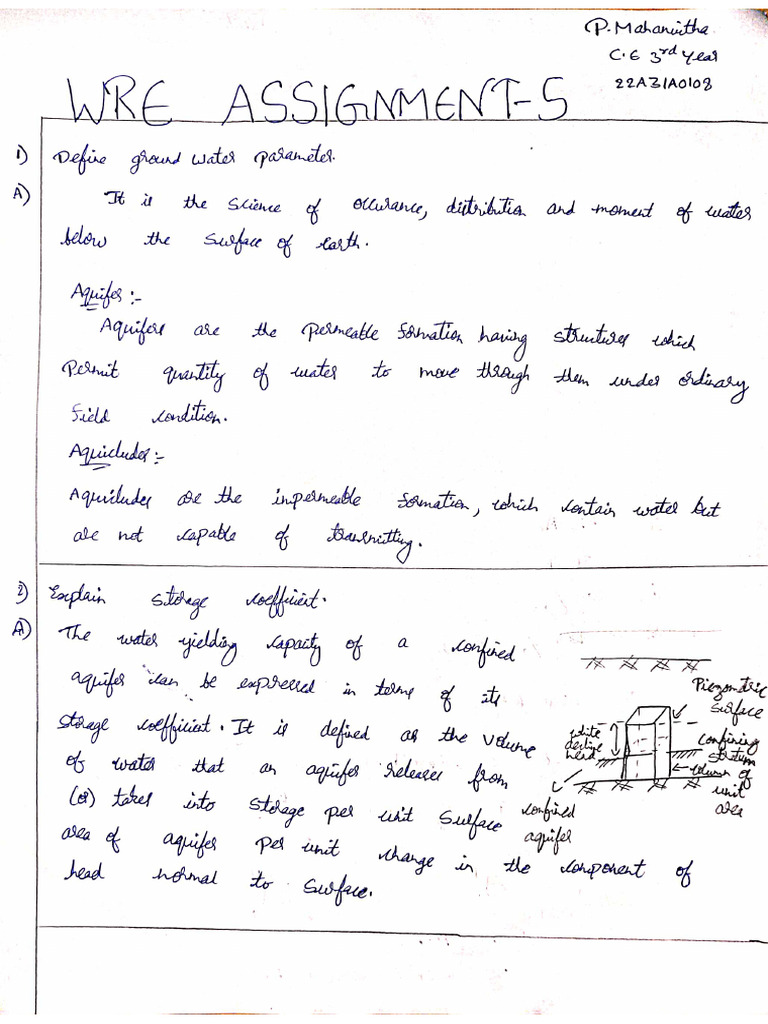 P. Mahanvitha
C.E 3rd Year
22A31A0108
WRE ASSIGNMENT-5
1) Define ground water parameter.
A) It is the science of occurance, distribution and moment of water
below the surface of earth.
Aquifer :-
Aquifers are the permeable formation having structures which
permit quantity of water to move through them under ordinary
field condition.
Aquicludes :-
Aquicludes are the impermeable formation, which contain water but
are not capable of transmitting.
2) Explain storage coefficient.
A) The water yielding capacity of a confined
aquifer can be expressed in terms of its
storage coefficient. It is defined as the volume
of water that an aquifer releases from
(or) takes into storage per unit surface
area of aquifer per unit change in the component of
head normal to surface.
Piezometric
surface
decline
head
confining
stratum
column of
unit
area
confined
aquifer